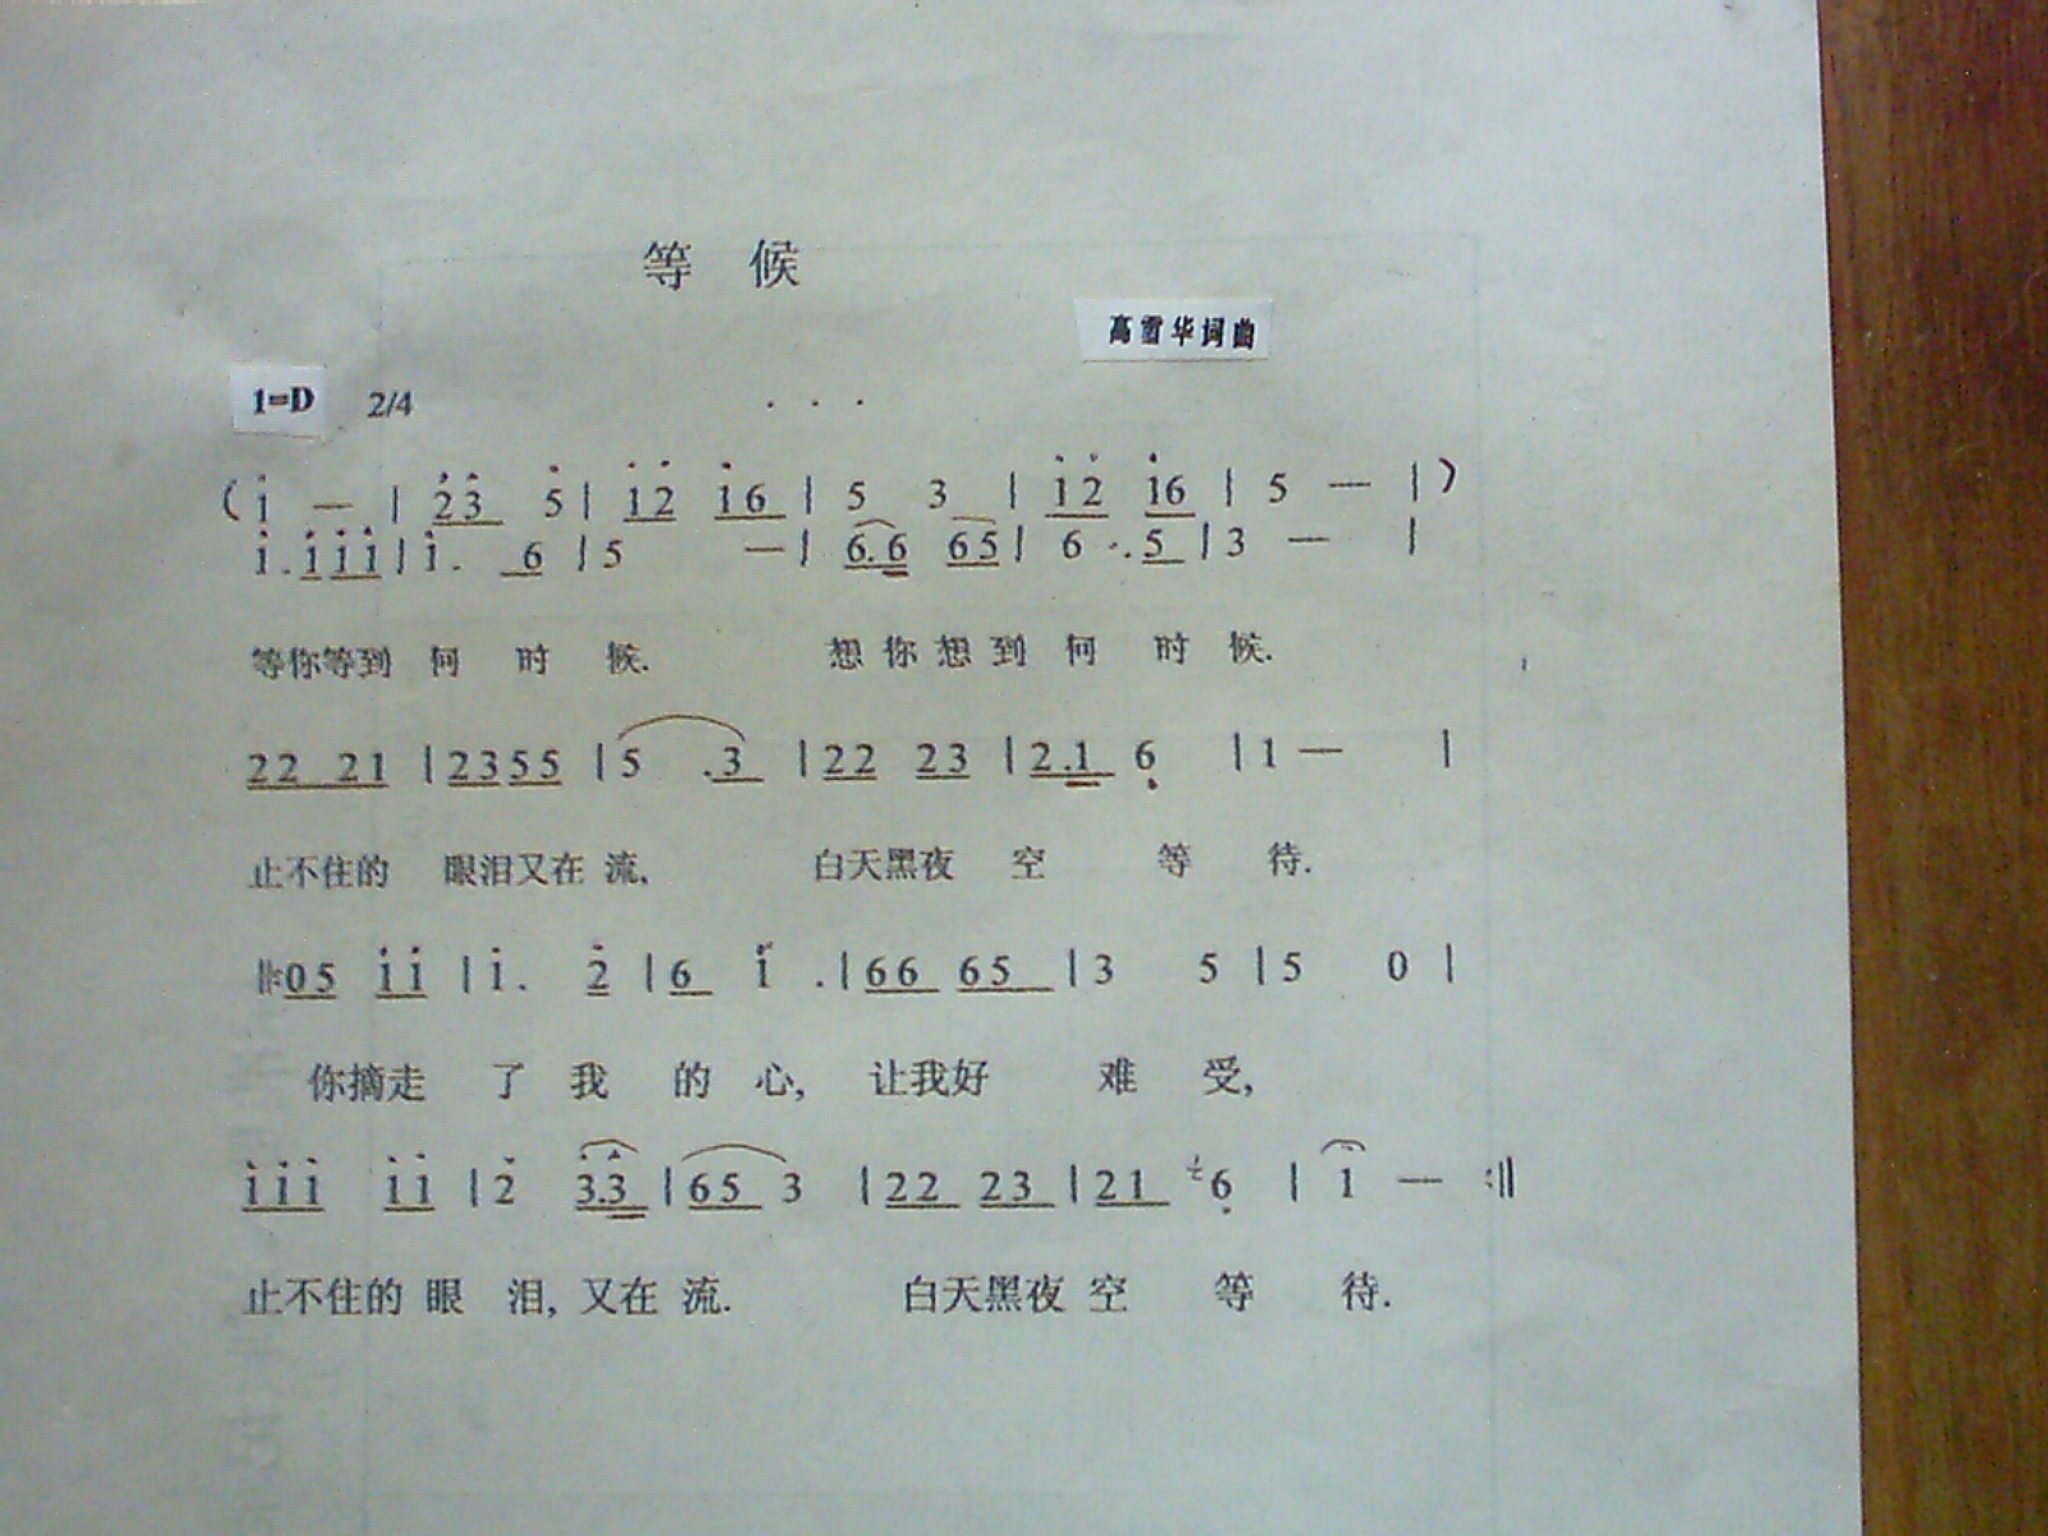 等 候
高雪华词曲
1=D 2/4
( i̇ — | 2̇3̇ 5̇ | i̇2̇ i̇6 | 5 3 | i̇2̇ i̇6 | 5 — | )
i̇. i̇ i̇ i̇ | i̇. 6 | 5 — | 6.6 65 | 6 . 5 | 3 — |
等你等到 何 时 候. 想 你 想 到 何 时 候.
22 21 | 2355 | 5 .3 | 22 23 | 2.1 6̣ | 1 — |
止不住的 眼泪又在 流, 白天黑夜 空 等 待.
‖: 05 i̇ i̇ | i̇. 2̇ | 6 i̇ . | 66 65 | 3 5 | 5 0 |
你摘走 了 我 的 心, 让我好 难 受,
i̇ i̇ i̇ i̇ i̇ | 2̇ 3̇.3̇ | 65 3 | 22 23 | 21 6̣ | 1 — :‖
止不住的 眼 泪, 又在 流. 白天黑夜 空 等 待.